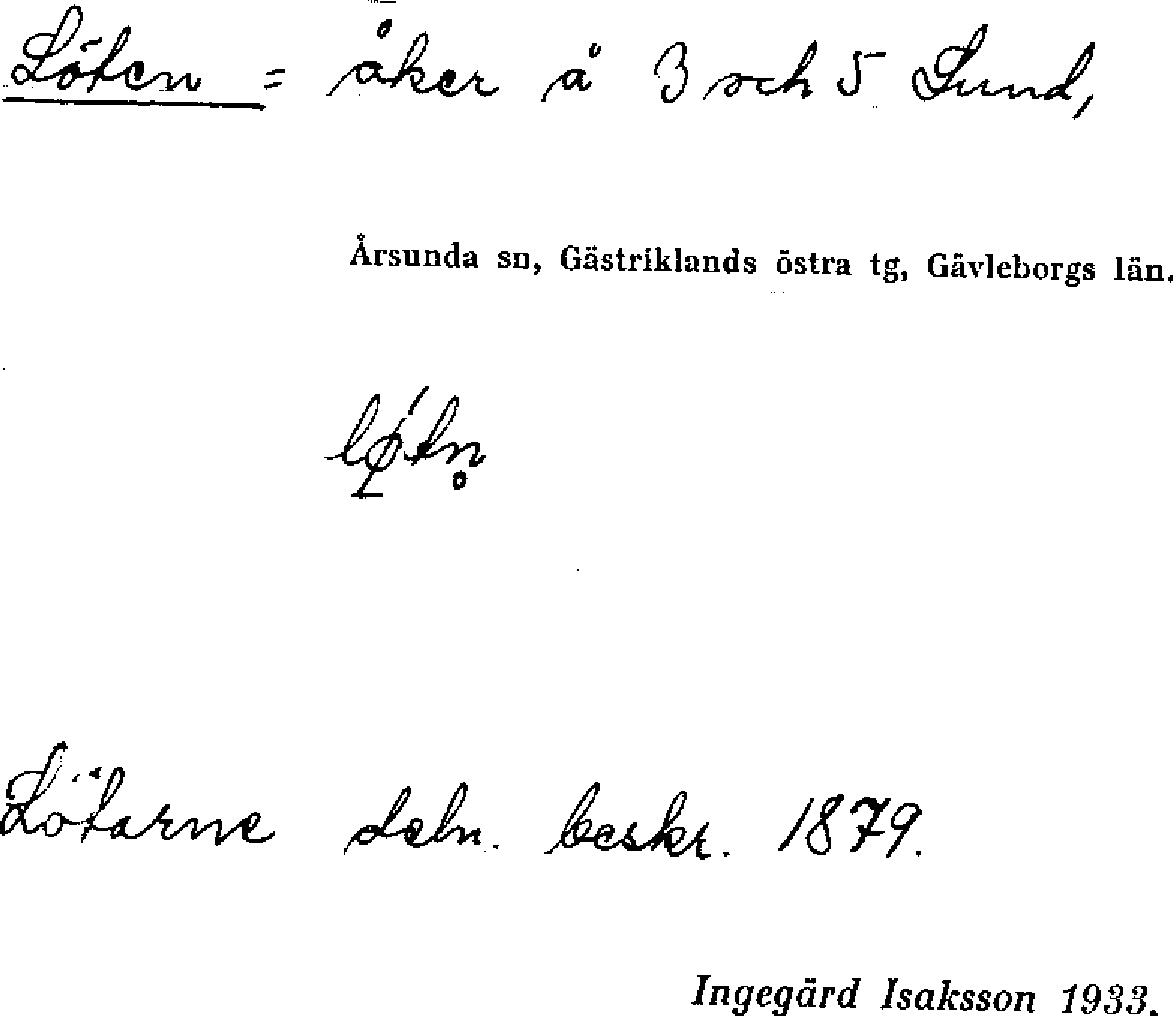 Löten = åker å 3 och 5 Lund,
Årsunda sn, Gästriklands östra tg, Gävleborgs län.
lǿ̠tn̥
Lötarne deln. beskr. 1879.
Ingegärd Isaksson 1933.